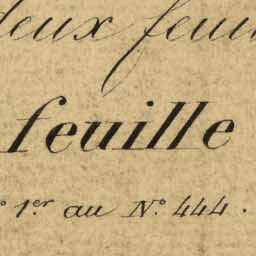 deux feui
feuille
° 1.er au N.° 444.